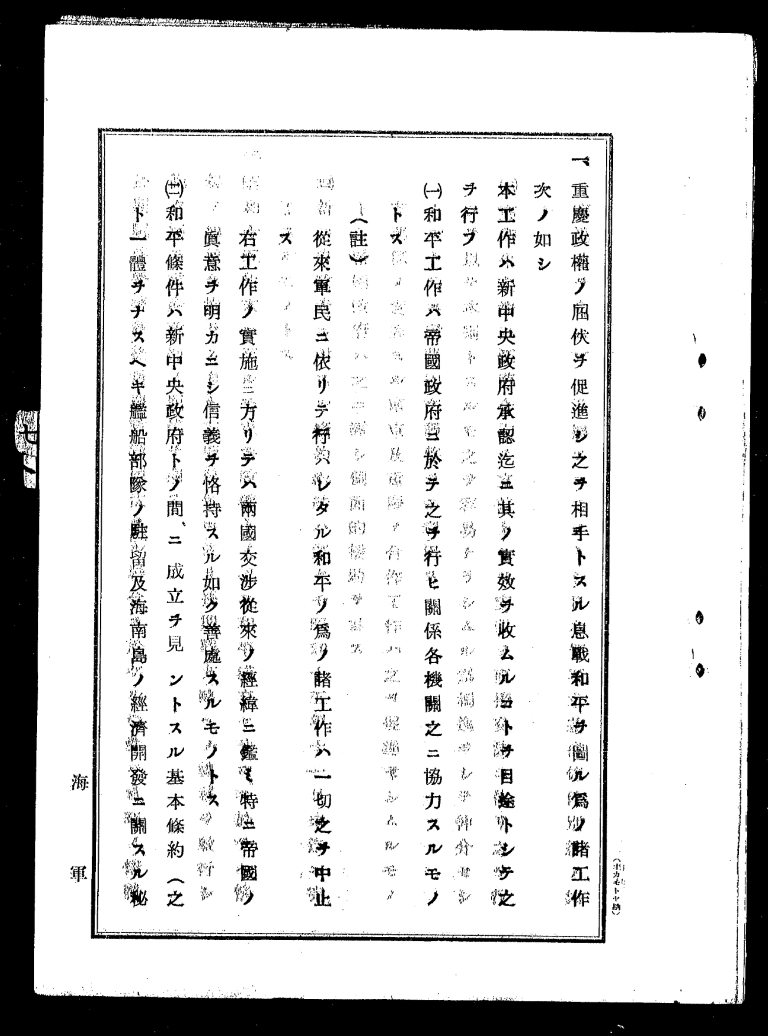 一、重慶政權ノ屈伏ヲ促進シ之ヲ相手トスル息戰和平ヲ圖ル爲ノ諸工作
次ノ如シ
本工作ハ新中央政府承認迄ニ其ノ實效ヲ收ムルコトヲ目途トシテ之
ヲ行フ
㈠和平工作ハ帝國政府ニ於テ之ヲ行ヒ關係各機關之ニ協力スルモノ
トス
(註)
從來軍民ニ依リテ行ハレタル和平ノ爲ノ諸工作ハ一切之ヲ中止
ス
右工作ノ實施ニ方リテハ兩國交渉從來ノ經緯ニ鑑ミ特ニ帝國ノ
眞意ヲ明カニシ信義ヲ恪持スル如ク善處スルモノトス
㈡和平條件ハ新中央政府トノ間、ニ成立ヲ見ントスル基本條約(之
ト一體ヲナスヘキ艦船部隊ノ駐留及海南島ノ經濟開發ニ關スル秘
海軍